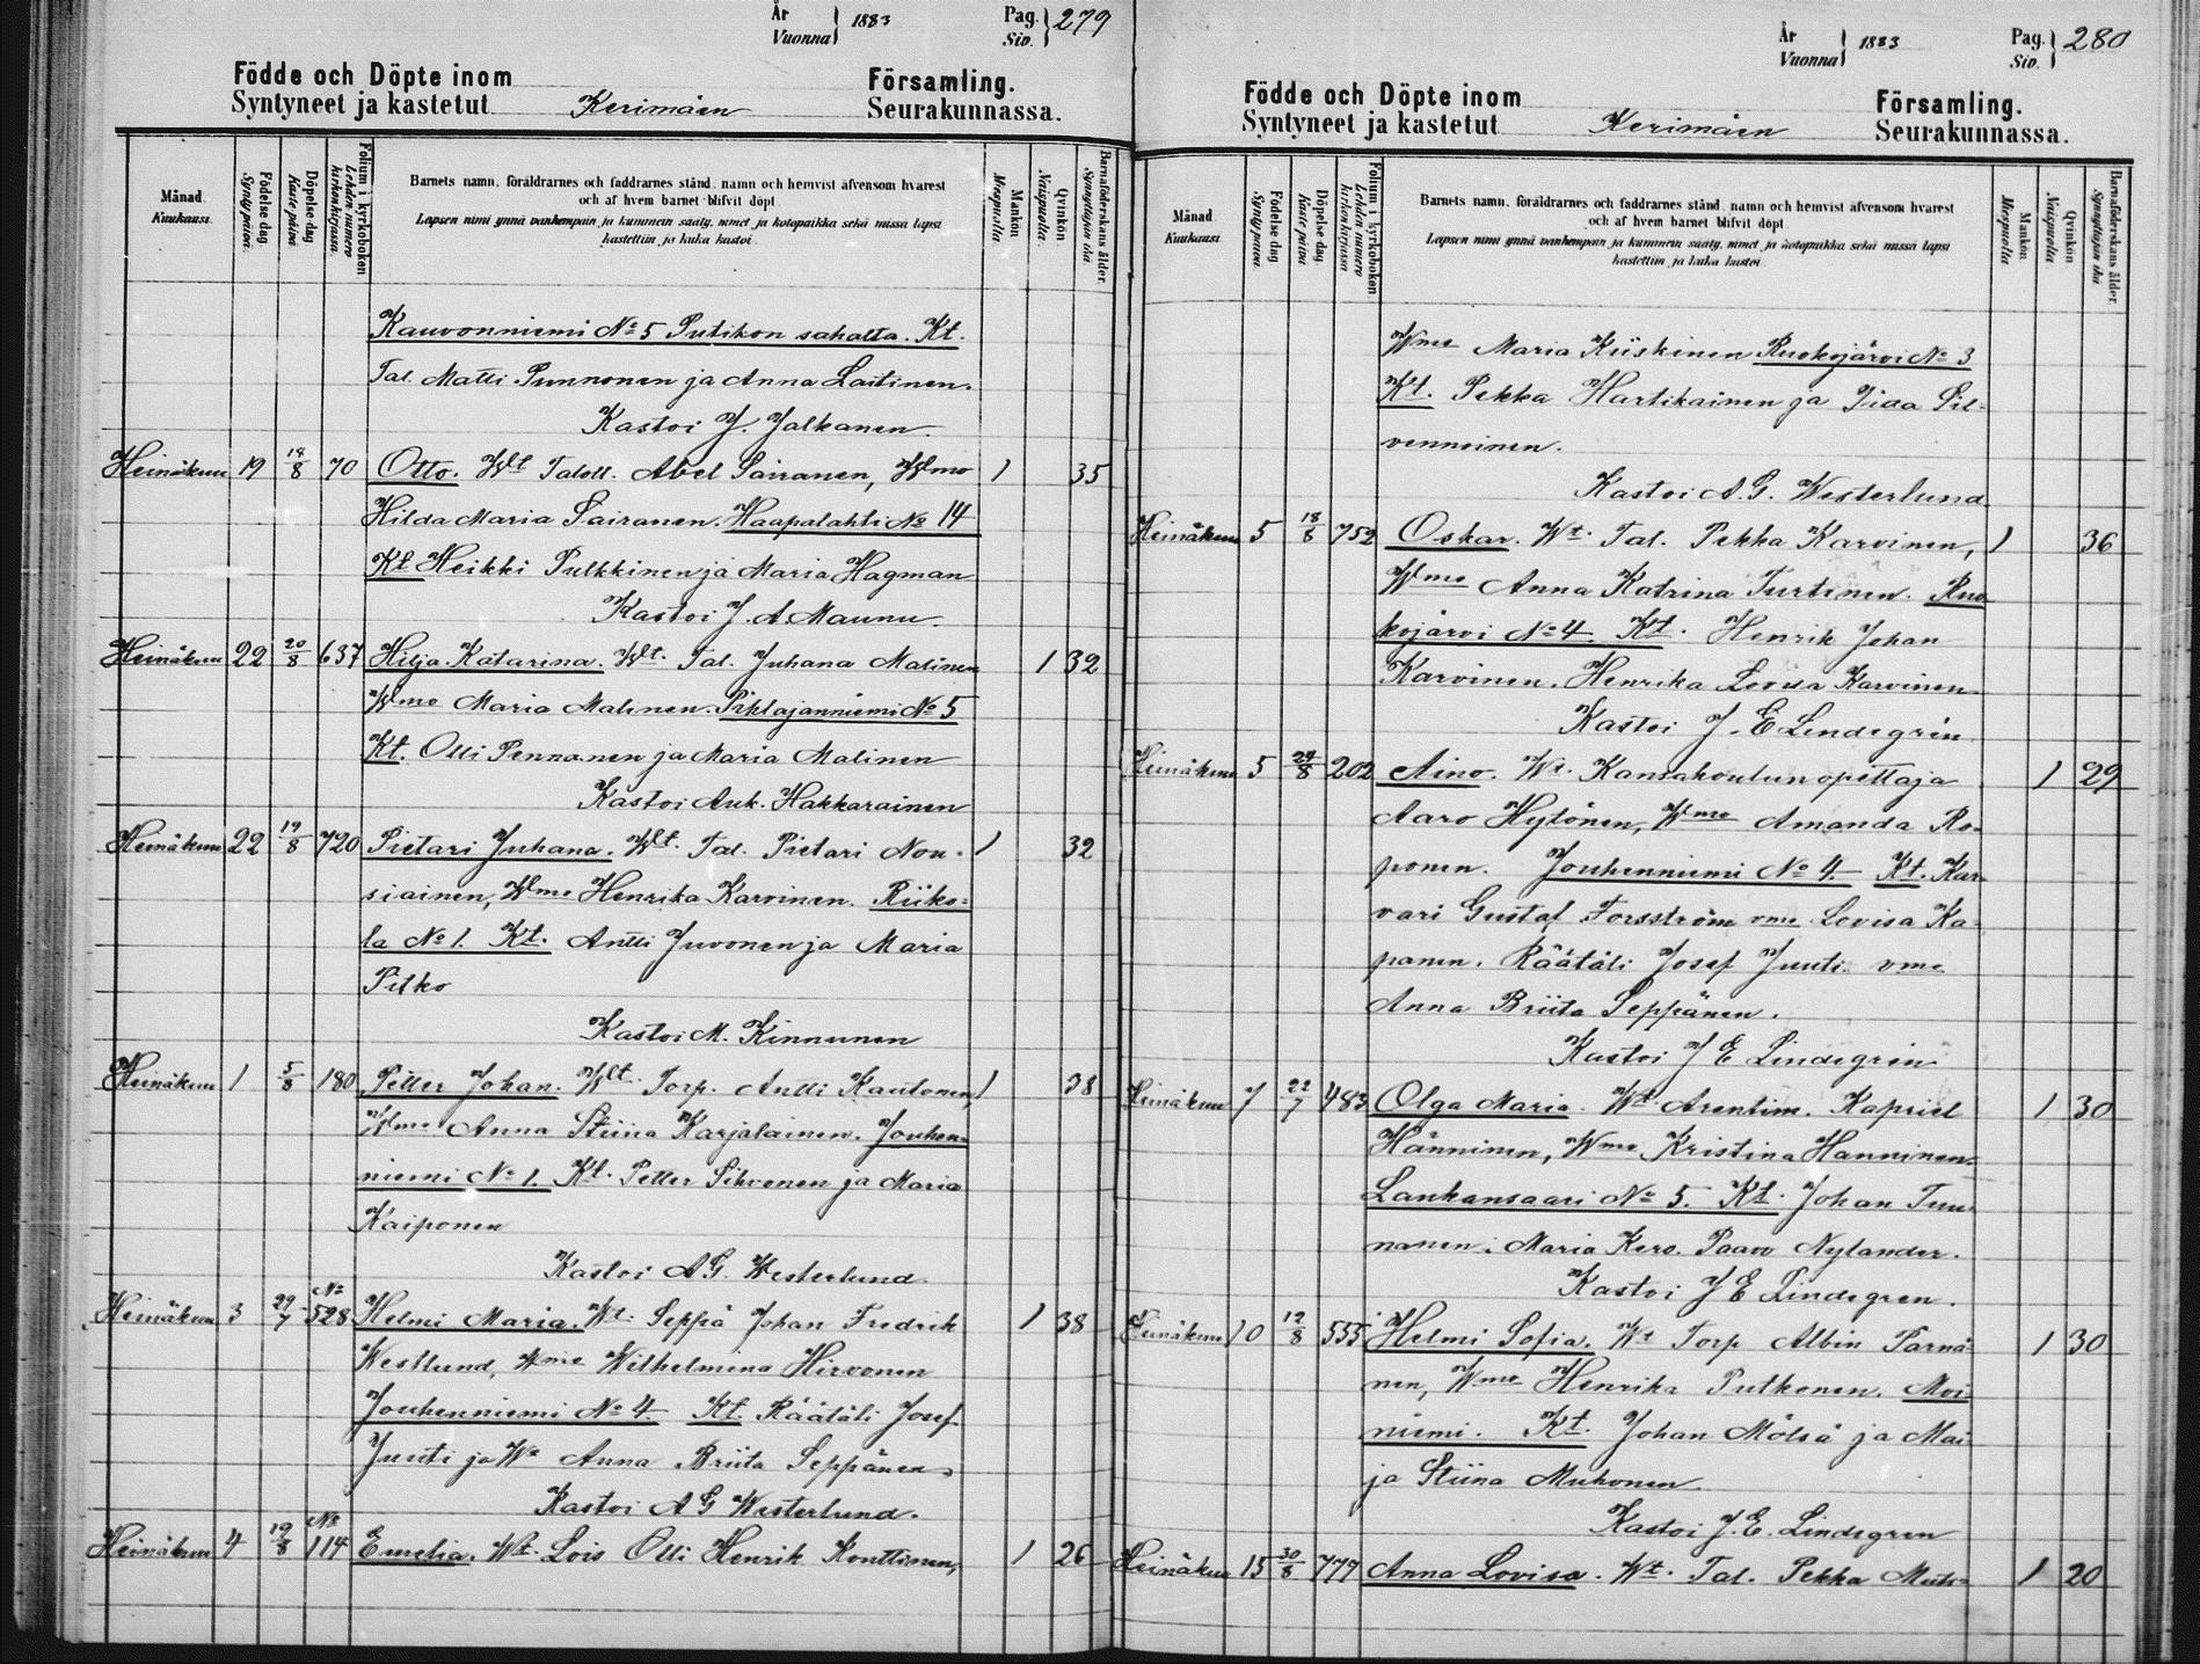 År
Vuonna } 1883
Pag.
Siv. } 279
Födde och Döpte inom
Syntyneet ja kastetut Kerimäen
Församling.
Seurakunnassa.
Månad.
Kuukausi.
Födelse dag
Syntypäivä.
Döpelse-dag
Kastepäivä
Folium i kyrkoboken
Lehden numero kirkonkirjassa.
Barnets namn, föräldrarnes och faddrarnes stånd, namn och hemvist äfvensom hvarest
och af hvem barnet blifvit döpt
Lapsen nimi ynnä vanhempain ja kummein sääty, nimet ja kotopaikka sekä missä lapsi
kastettiin ja kuka kastoi.
Mankön
Miespuolia
Qvinkön
Naispuolia.
Barnaföderskans ålder.
Synnyttäjän ikä.
Kauvonniemi No 5 Putikon sahalta. Kt.
Tal. Matti Punnonen ja Anna Laitinen.
Kastoi J. Jalkanen.
Heinäkuu 19 18/8 70 Otto. Wlt Taloll. Abel Sairanen, Wlmo 1 35
Hilda Maria Sairanen. Haapalahti No 14
Kt Heikki Pulkkinen ja Maria Hagman
Kastoi J. A. Maunu.
Heinäkuu 22 20/8 637 Hilja Katarina. Wlt. Tal. Juhana Malinen 1 32
Wlmo Maria Malinen. Pihlajanniemi No 5
Kt. Olli Pennanen ja Maria Malinen
Kastoi Auk. Hakkarainen
Heinäkuu 22 19/8 720 Pietari Juhana. Wlt. Tal. Pietari Nou- 1 32
siainen, Wlmo Henrika Karvinen. Riiko-
la No 1. Kt. Antti Juvonen ja Maria
Pitko
Kastoi M. Kinnunen
Heinäkuu 1 5/8 180 Petter Johan. Wlt. Torp. Antti Kautonen, 1 38
Wlmo Anna Stiina Karjalainen. Jouhen-
niemi No 1. Kt. Petter Sihvonen ja Maria
Kaiponen
Kastoi A G. Westerlund.
Heinäkuu 3 29/7 No 528 Helmi Maria. Wt. Seppä Johan Fredrik 1 38
Westlund, Wmo Wilhelmina Hirvonen
Jouhenniemi No 4. Kt. Räätäli Josef
Juuti ja Wo Anna Briita Seppänen
Kastoi A G Westerlund.
Heinäkuu 4 19/8 No 114 Eurelia. Wt. Lois Olli Henrik Konttinen, 1 26
År
Vuonna } 1883
Pag.
Siv. } 280
Födde och Döpte inom
Syntyneet ja kastetut Kerimäen
Församling.
Seurakunnassa.
Månad
Kuukausi
Födelse dag
Syntypäivä.
Döpelse dag
Kastepäivä
Folium i kyrkoboken
Lehden numero kirkonkirjassa
Barnets namn, föräldrarnes och faddrarnes stånd, namn och hemvist äfvensom hvarest
och af hvem barnet blifvit döpt
Lapsen nimi ynnä vanhempain ja kummein sääty, nimet ja kotopaikka sekä missä lapsi
kastettiin ja kuka kastoi.
Mankön
Miespuolia
Qvinkön
Naispuolia
Barnaföderskans ålder.
Synnyttäjän ikä
Wmo Maria Kiiskinen Ruokojärvi No 3
Kt. Pekka Hartikainen ja Iida Sil-
vennoinen.
Kastoi A. G. Westerlund
Heinäkuu 5 18/8 752 Oskar. Wt. Tal. Pekka Karvinen, 1 36
Wlmo Anna Katrina Turtinen. Ruo
kojärvi No 4. Kt. Henrik Johan
Karvinen. Henrika Lovisa Karvinen
Kastoi J. E Lindegrén
Heinäkuu 5 24/8 202 Aino. Wt. Kansakoulun opettaja 1 29
Aaro Hytönen, Wlmo Amanda Ro-
ponen. Jouhenniemi No 4. Kt. Kar-
vari Gustaf Forsström vmo Lovisa Ka-
panen. Räätäli Josef Juuti vmo
Anna Briita Seppänen.
Kastoi J E Lindegrén
Heinäkuu 7 22/7 483 Olga Maria. Wt. Arentim. Kapriel 1 30
Hänninen, Wmo Kristina Hänninen.
Laukansaari No 5. Kt. Johan Tuu-
nanen. Maria Kero. Paavo Nylander.
Kastoi J E Lindegren.
Heinäkuu 10 12/8 555 Helmi Sofia. Wt Torp Albin Parnä- 1 30
nen, Wmo Henrika Putkonen. Moi
niemi. Kt. Johan Mölsä ja Mai
ja Stiina Muhonen.
Kastoi J. E. Lindegren
Heinäkuu 15 30/8 777 Anna Lovisa. Wt. Tal. Pekka Muh- 1 20